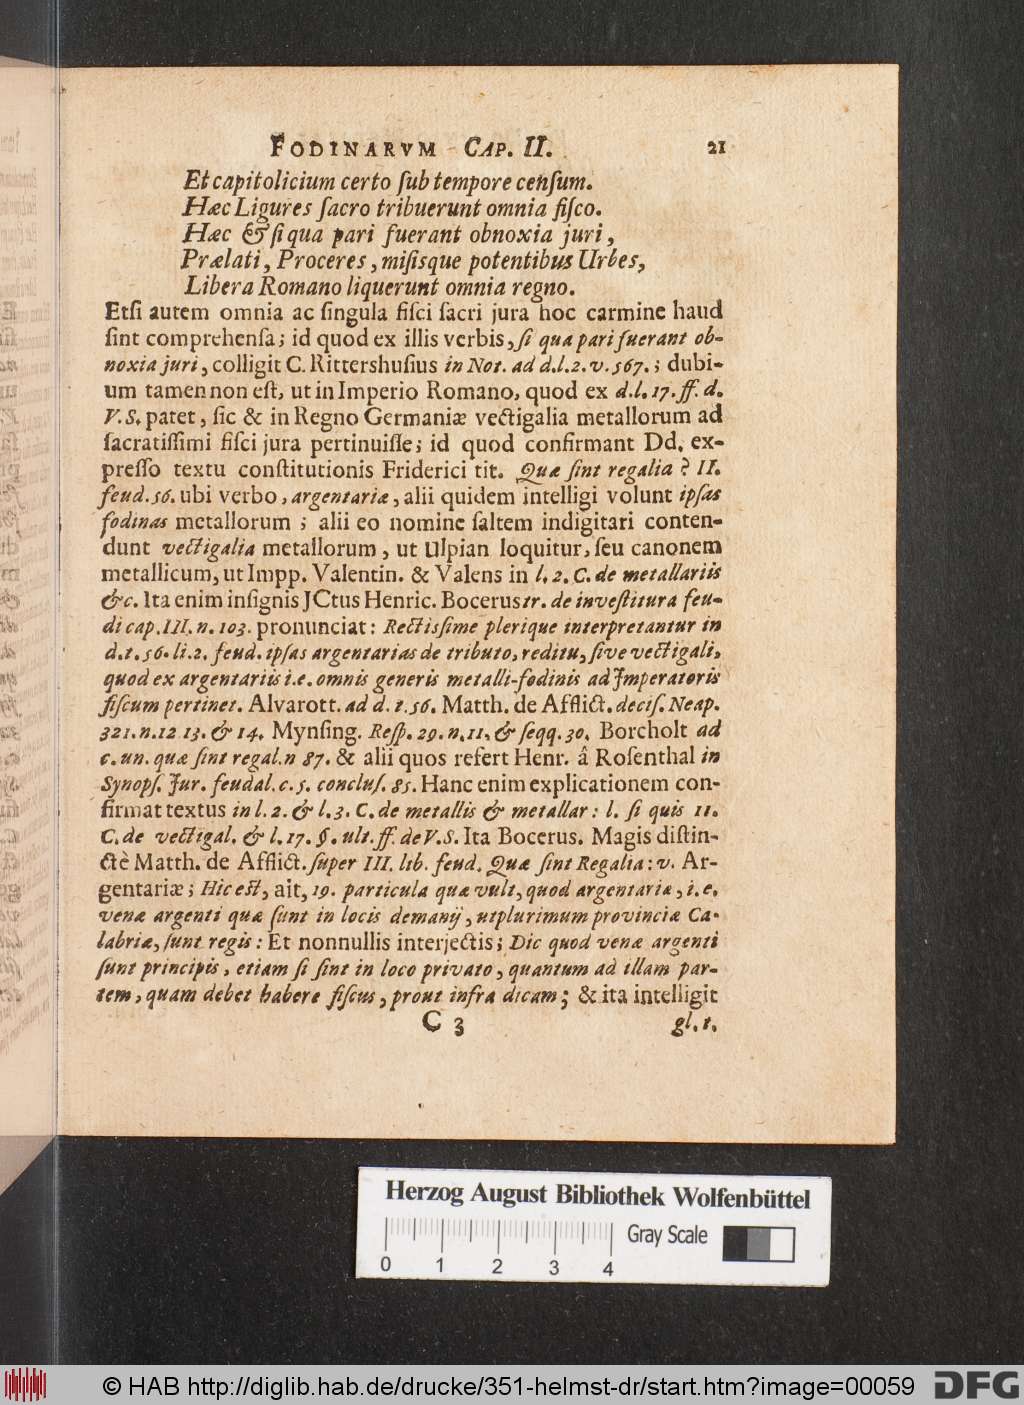 FODINARVM CAP. II. 21
Et capitolicium certo ſub tempore cenſum.
Hæc Ligures ſacro tribuerunt omnia fiſco.
Hæc & ſi qua pari fuerant obnoxia juri,
Prælati, Proceres, miſisque potentibus Urbes,
Libera Romano liquerunt omnia regno.
Etſi autem omnia ac ſingula fiſci ſacri jura hoc carmine haud
ſint comprehenſa; id quod ex illis verbis, ſi qua pari fuerant ob-
noxia juri, colligit C. Rittershuſius in Not. ad d.l.2. v. 567.; dubi-
um tamen non eſt, ut in Imperio Romano, quod ex d.l. 17. ff. d.
V. S. patet, ſic & in Regno Germaniæ vectigalia metallorum ad
ſacratiſſimi fiſci jura pertinuiſſe; id quod confirmant Dd. ex-
preſſo textu conſtitutionis Friderici tit. Quæ ſint regalia? II.
feud. 56. ubi verbo, argentariæ, alii quidem intelligi volunt ipſas
fodinas metallorum; alii eo nomine ſaltem indigitari conten-
dunt vectigalia metallorum, ut Ulpian loquitur, ſeu canonem
metallicum, ut Impp. Valentin. & Valens in l. 2. C. de metallariis
&c. Ita enim inſignis JCtus Henric. Bocerus tr. de inveſtitura feu-
di cap. III. n. 103. pronunciat: Rectiſſime plerique interpretantur in
d. t. 56. li. 2. feud. ipſas argentarias de tributo, reditu, ſive vectigali,
quod ex argentariis i.e. omnis generis metalli-fodinis ad Imperatoris
fiſcum pertinet. Alvarott. ad d. t. 56. Matth. de Afflict. deciſ. Neap.
321. n. 12 13. & 14. Mynſing. Reſp. 29. n. 11, & ſeqq. 30. Borcholt ad
c. un. quæ ſint regal. n 87. & alii quos refert Henr. â Roſenthal in
Synopſ. Jur. feudal. c. 5. concluſ. 85. Hanc enim explicationem con-
firmat textus in l. 2. & l. 3. C. de metallis & metallar: l. ſi quis 11.
C. de vectigal. & l. 17. §. ult. ff. de V. S. Ita Bocerus. Magis diſtin-
ctè Matth. de Afflict. ſuper III. lib. feud. Quæ ſint Regalia: v. Ar-
gentariæ; Hic eſt, ait, 19. particula quæ vult, quod argentariæ, i.e.
venæ argenti quæ ſunt in locis demanij, utplurimum provinciæ Ca-
labriæ, ſunt regis: Et nonnullis interjectis; Dic quod venæ argenti
ſunt principis, etiam ſi ſint in loco privato, quantum ad illam par-
tem, quam debet habere fiſcus, prout infra dicam; & ita intelligit
C 3 gl. t.
Herzog August Bibliothek Wolfenbüttel
Gray Scale
0 1 2 3 4
© HAB http://diglib.hab.de/drucke/351-helmst-dr/start.htm?image=00059 DFG